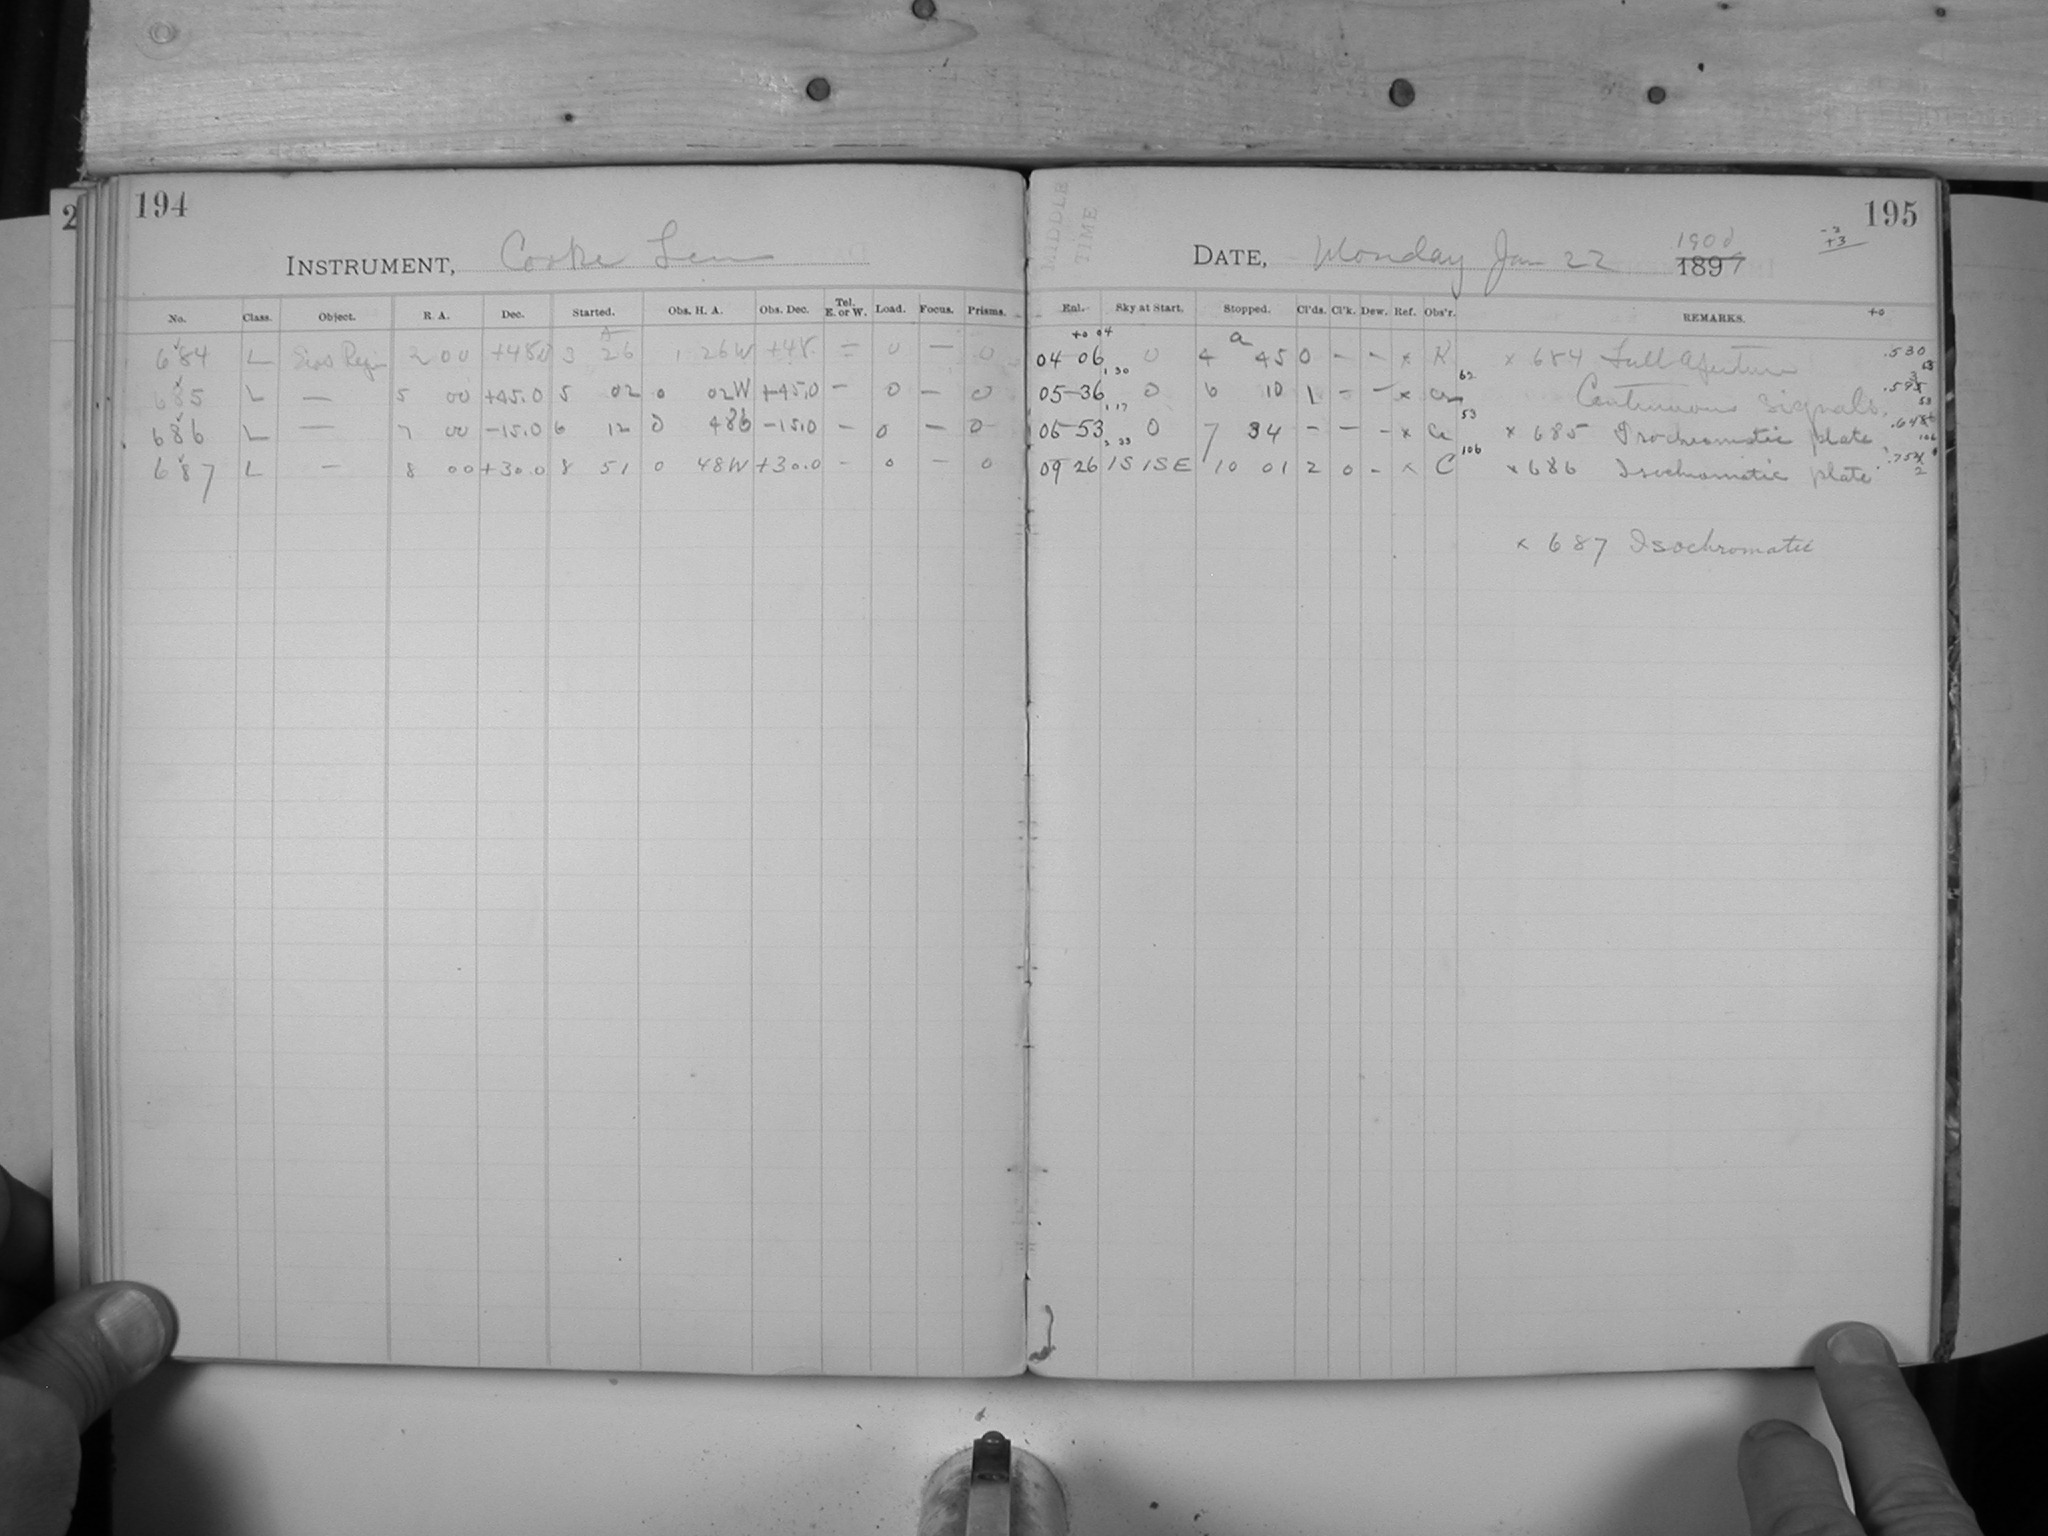 194
INSTRUMENT, Cooke Lens
No. Class. Object. R. A. Dec. Started. Obs. H. A. Obs. Dec. Tel. E. or W. Load. Focus. Prisms.
684 L 2 00 +48.0 3 26 1 26W +48. = 0 — 0
685 L — 5 00 +45.0 5 02 0 02W +45.0 — 0 — 0
686 L — 7 00 -15.0 6 12 0 48E -15.0 — 0 — 0
687 L — 8 00 +30.0 8 51 0 48W +30.0 - 0 — 0
2
MIDDLE
TIME
195
DATE, Monday Jan 22 1900
1897
-3
+3
Sky at Start. Stopped. Cl'ds. Cl'k. Dew. Ref. Obs'r. REMARKS. +0
+0 04 a
04 06 0 4 45 0 - - x K x 684 Full Aperture .530
1 30 62
05-36 0 6 10 1 - - x Continuous signals.
1 17 53
06-53 0 7 34 - - - x x 685 Isochromatic plate
2 33 106
09 26 1S 1SE 10 01 2 0 - x C x 686 Isochromatic plate
x 687 Isochromatic